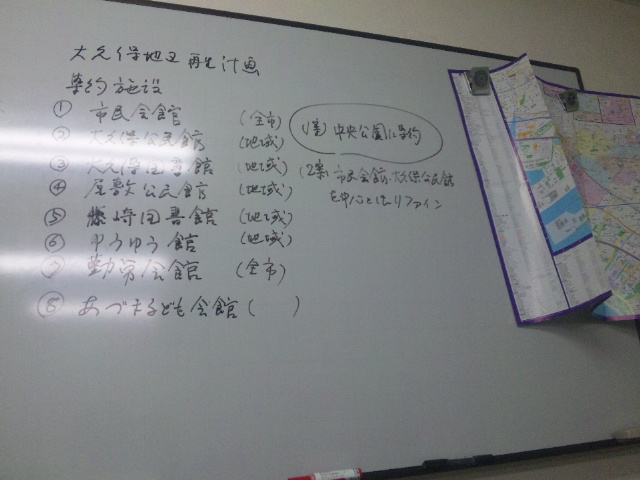 大久保地区再生計画
集約施設
① 市民会館 (全市)
② 大久保公民館 (地域)
③ 大久保図書館 (地域)
④ 屋敷公民館 (地域)
⑤ 藤崎図書館 (地域)
⑥ ゆうゆう館 (地域)
⑦ 勤労会館 (全市)
⑧ あづまこども会館 ( )
(1案) 中央公園に集約
(2案) 市民会館・大久保公民館
を中心としたリファイン